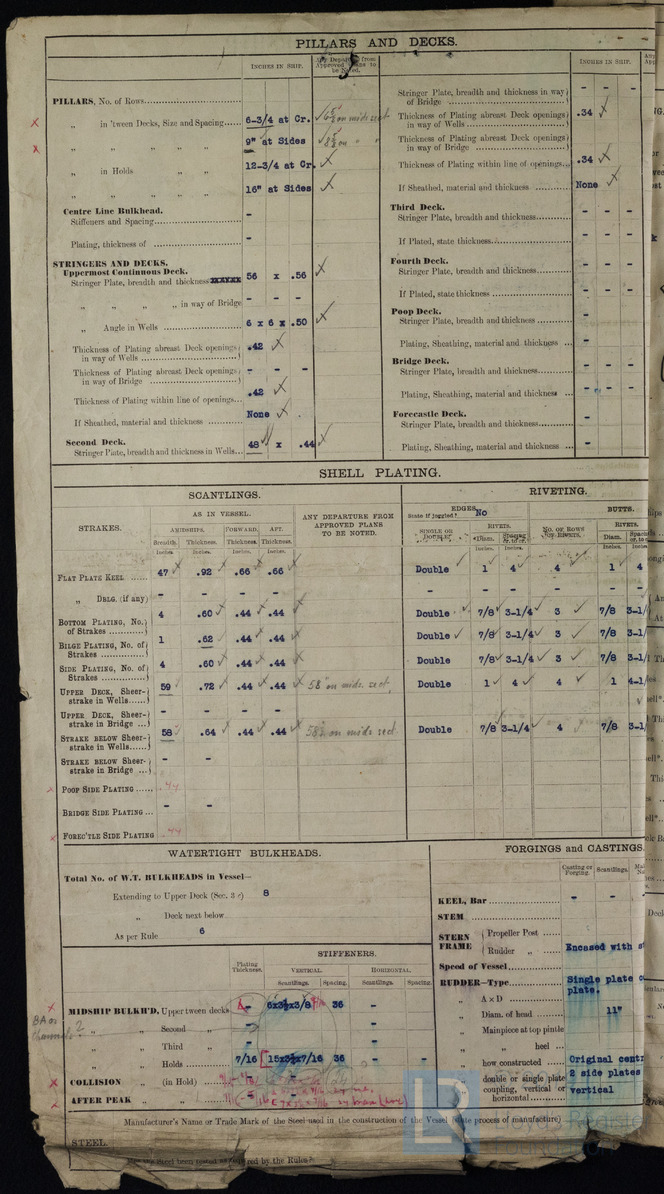 PILLARS AND DECKS.
INCHES IN SHIP.
Any Departure from Approved Plans to be Noted.
PILLARS, No. of Rows
„ in 'tween Decks, Size and Spacing 6-3/4 at Cr. on mids. sect
„ „ „ „ 9" at Sides
„ in Holds „ „ 12-3/4 at Cr.
„ „ „ „ 16" at Sides
Centre Line Bulkhead.
Stiffeners and Spacing -
Plating, thickness of -
STRINGERS AND DECKS.
Uppermost Continuous Deck.
Stringer Plate, breadth and thickness 56 x .56
„ „ „ „ in way of Bridge - - -
„ Angle in Wells 6 x 6 x .50
Thickness of Plating abreast Deck openings in way of Wells .42
Thickness of Plating abreast Deck openings in way of Bridge - - -
Thickness of Plating within line of openings .42
If Sheathed, material and thickness None
Second Deck.
Stringer Plate, breadth and thickness in Wells 48 x .44
INCHES IN SHIP.
Stringer Plate, breadth and thickness in way of Bridge - - -
Thickness of Plating abreast Deck openings in way of Wells .34
Thickness of Plating abreast Deck openings in way of Bridge - - -
Thickness of Plating within line of openings .34
If Sheathed, material and thickness None
Third Deck.
Stringer Plate, breadth and thickness - - -
If Plated, state thickness - - -
Fourth Deck.
Stringer Plate, breadth and thickness - - -
If Plated, state thickness - - -
Poop Deck.
Stringer Plate, breadth and thickness -
Plating, Sheathing, material and thickness -
Bridge Deck.
Stringer Plate, breadth and thickness - - -
Plating, Sheathing, material and thickness - - -
Forecastle Deck.
Stringer Plate, breadth and thickness -
Plating, Sheathing, material and thickness -
SHELL PLATING.
SCANTLINGS.
RIVETING.
STRAKES.
AS IN VESSEL.
AMIDSHIPS. FORWARD. AFT.
Breadth. Thickness. Thickness. Thickness.
Inches. Inches. Inches. Inches.
ANY DEPARTURE FROM APPROVED PLANS TO BE NOTED.
EDGES
State if joggled? No
SINGLE OR DOUBLE?
RIVETS.
Diam.
Inches Inches
No. of Rows of Rivets.
BUTTS.
RIVETS.
Diam.
Inches Inches
FLAT PLATE KEEL 47 .92 .66 .66 Double 1 4 4 1 4
„ DBLG. (if any) - - - - - - - - - -
BOTTOM PLATING, No. of Strakes 4 .60 .44 .44 Double 7/8 3-1/4 3 7/8 3-1/
BILGE PLATING, No. of Strakes 1 .62 .44 .44 Double 7/8 3-1/4 3 7/8 3-1/
SIDE PLATING, No. of Strakes 4 .60 .44 .44 Double 7/8 3-1/4 3 7/8 3-1/
UPPER DECK, Sheerstrake in Wells 59 .72 .44 .44 58" on mids. sect. Double 1 4 4 1 4-1/
UPPER DECK, Sheerstrake in Bridge - -
STRAKE BELOW Sheerstrake in Wells 58 .64 .44 .44 58½ on mids sect. Double 7/8 3-1/4 4 7/8 3-1/
STRAKE BELOW Sheerstrake in Bridge - -
POOP SIDE PLATING .44
BRIDGE SIDE PLATING - -
FOREC'TLE SIDE PLATING .44
WATERTIGHT BULKHEADS.
Total No. of W.T. BULKHEADS in Vessel—
Extending to Upper Deck 8
„ Deck next below
As per Rule 6
Plating Thickness.
STIFFENERS.
VERTICAL. HORIZONTAL.
Scantlings. Spacing. Scantlings. Spacing.
MIDSHIP BULK'D, Upper tween decks 6x3½x3/8 36 -
„ „ Second „ - -
„ „ Third „ - -
„ „ Holds 7/16 15x3½x7/16 36 - -
COLLISION „ (in Hold)
AFTER PEAK „ „
FORGINGS and CASTINGS
Casting or Forging. Scantlings.
KEEL, Bar - -
STEM
STERN FRAME
Propeller Post
Rudder „ Encased with
Speed of Vessel
RUDDER—Type Single plate
plate.
„ A x D
„ Diam. of head 11"
„ Mainpiece at top pintle
„ „ heel
„ how constructed Original cent
„ double or single plate 2 side plates
„ coupling, vertical or horizontal vertical
Manufacturer's Name or Trade Mark of the Steel used in the construction of the Vessel (state process of manufacture)
STEEL.
LR